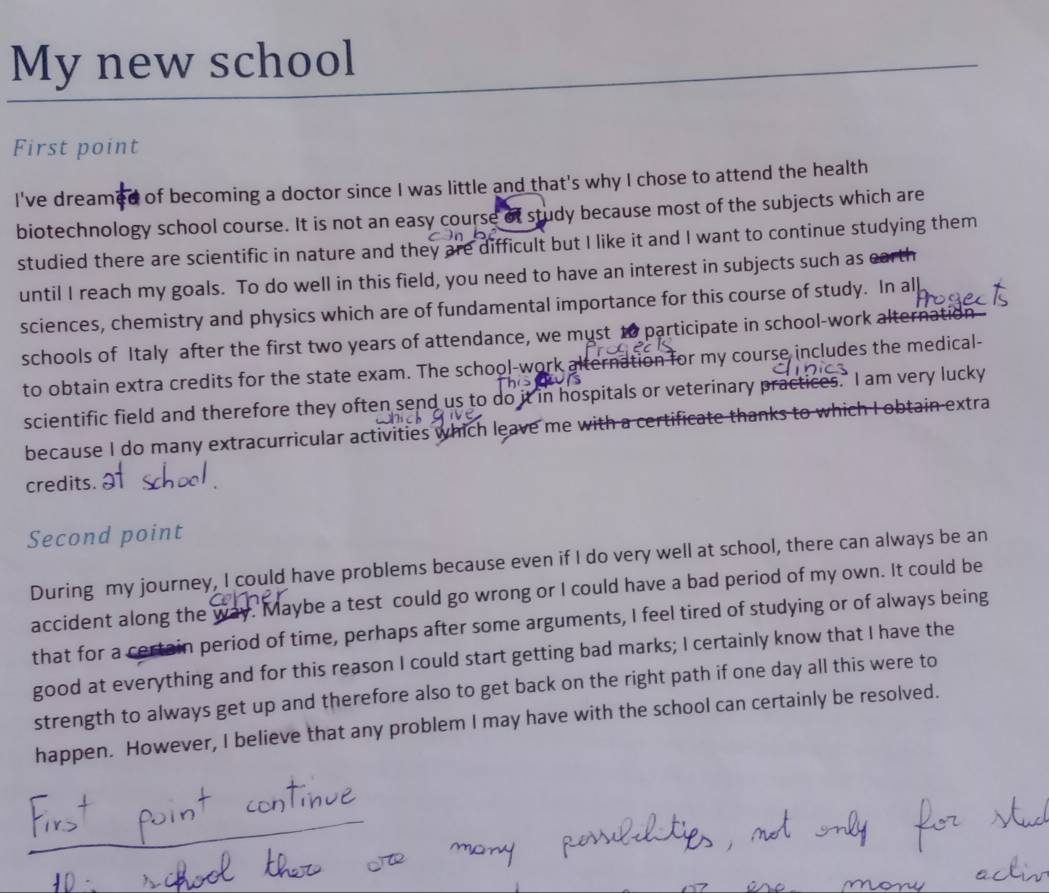 My new school
First point
I've dreamed of becoming a doctor since I was little and that's why I chose to attend the health
biotechnology school course. It is not an easy course of study because most of the subjects which are
can be
studied there are scientific in nature and they are difficult but I like it and I want to continue studying them
until I reach my goals. To do well in this field, you need to have an interest in subjects such as earth
sciences, chemistry and physics which are of fundamental importance for this course of study. In all
Progects
schools of Italy after the first two years of attendance, we must to participate in school-work alternation
Progects
to obtain extra credits for the state exam. The school-work alternation for my course includes the medical-
This clinics
scientific field and therefore they often send us to do it in hospitals or veterinary practices. I am very lucky
which give
because I do many extracurricular activities which leave me with a certificate thanks to which I obtain extra
credits. at school.
Second point
During my journey, I could have problems because even if I do very well at school, there can always be an
corner
accident along the way. Maybe a test could go wrong or I could have a bad period of my own. It could be
that for a certain period of time, perhaps after some arguments, I feel tired of studying or of always being
good at everything and for this reason I could start getting bad marks; I certainly know that I have the
strength to always get up and therefore also to get back on the right path if one day all this were to
happen. However, I believe that any problem I may have with the school can certainly be resolved.
First point continue
school there are many possibilities, not only for stud
many activ